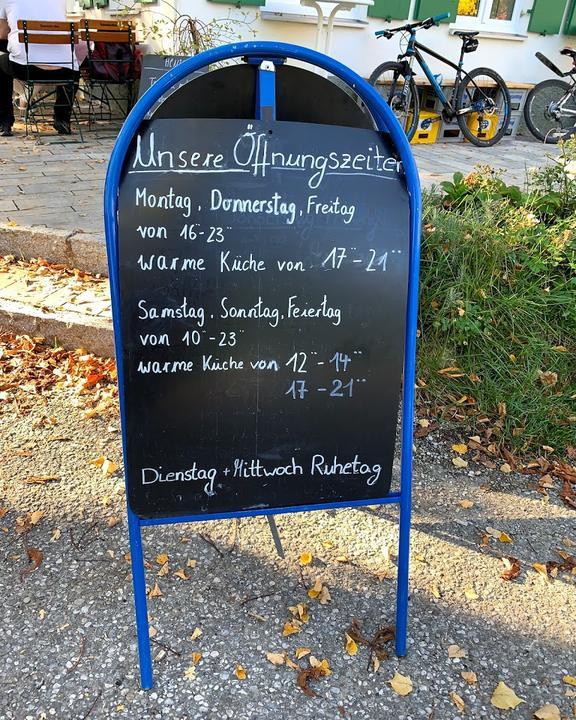 Unsere Öffnungszeiten
Montag, Donnerstag, Freitag
von 16°°-23°°
warme Küche von 17°°-21°°
Samstag, Sonntag, Feiertag
von 10°°-23°°
warme Küche von 12°°-14°°
17°°-21°°
Dienstag + Mittwoch Ruhetag